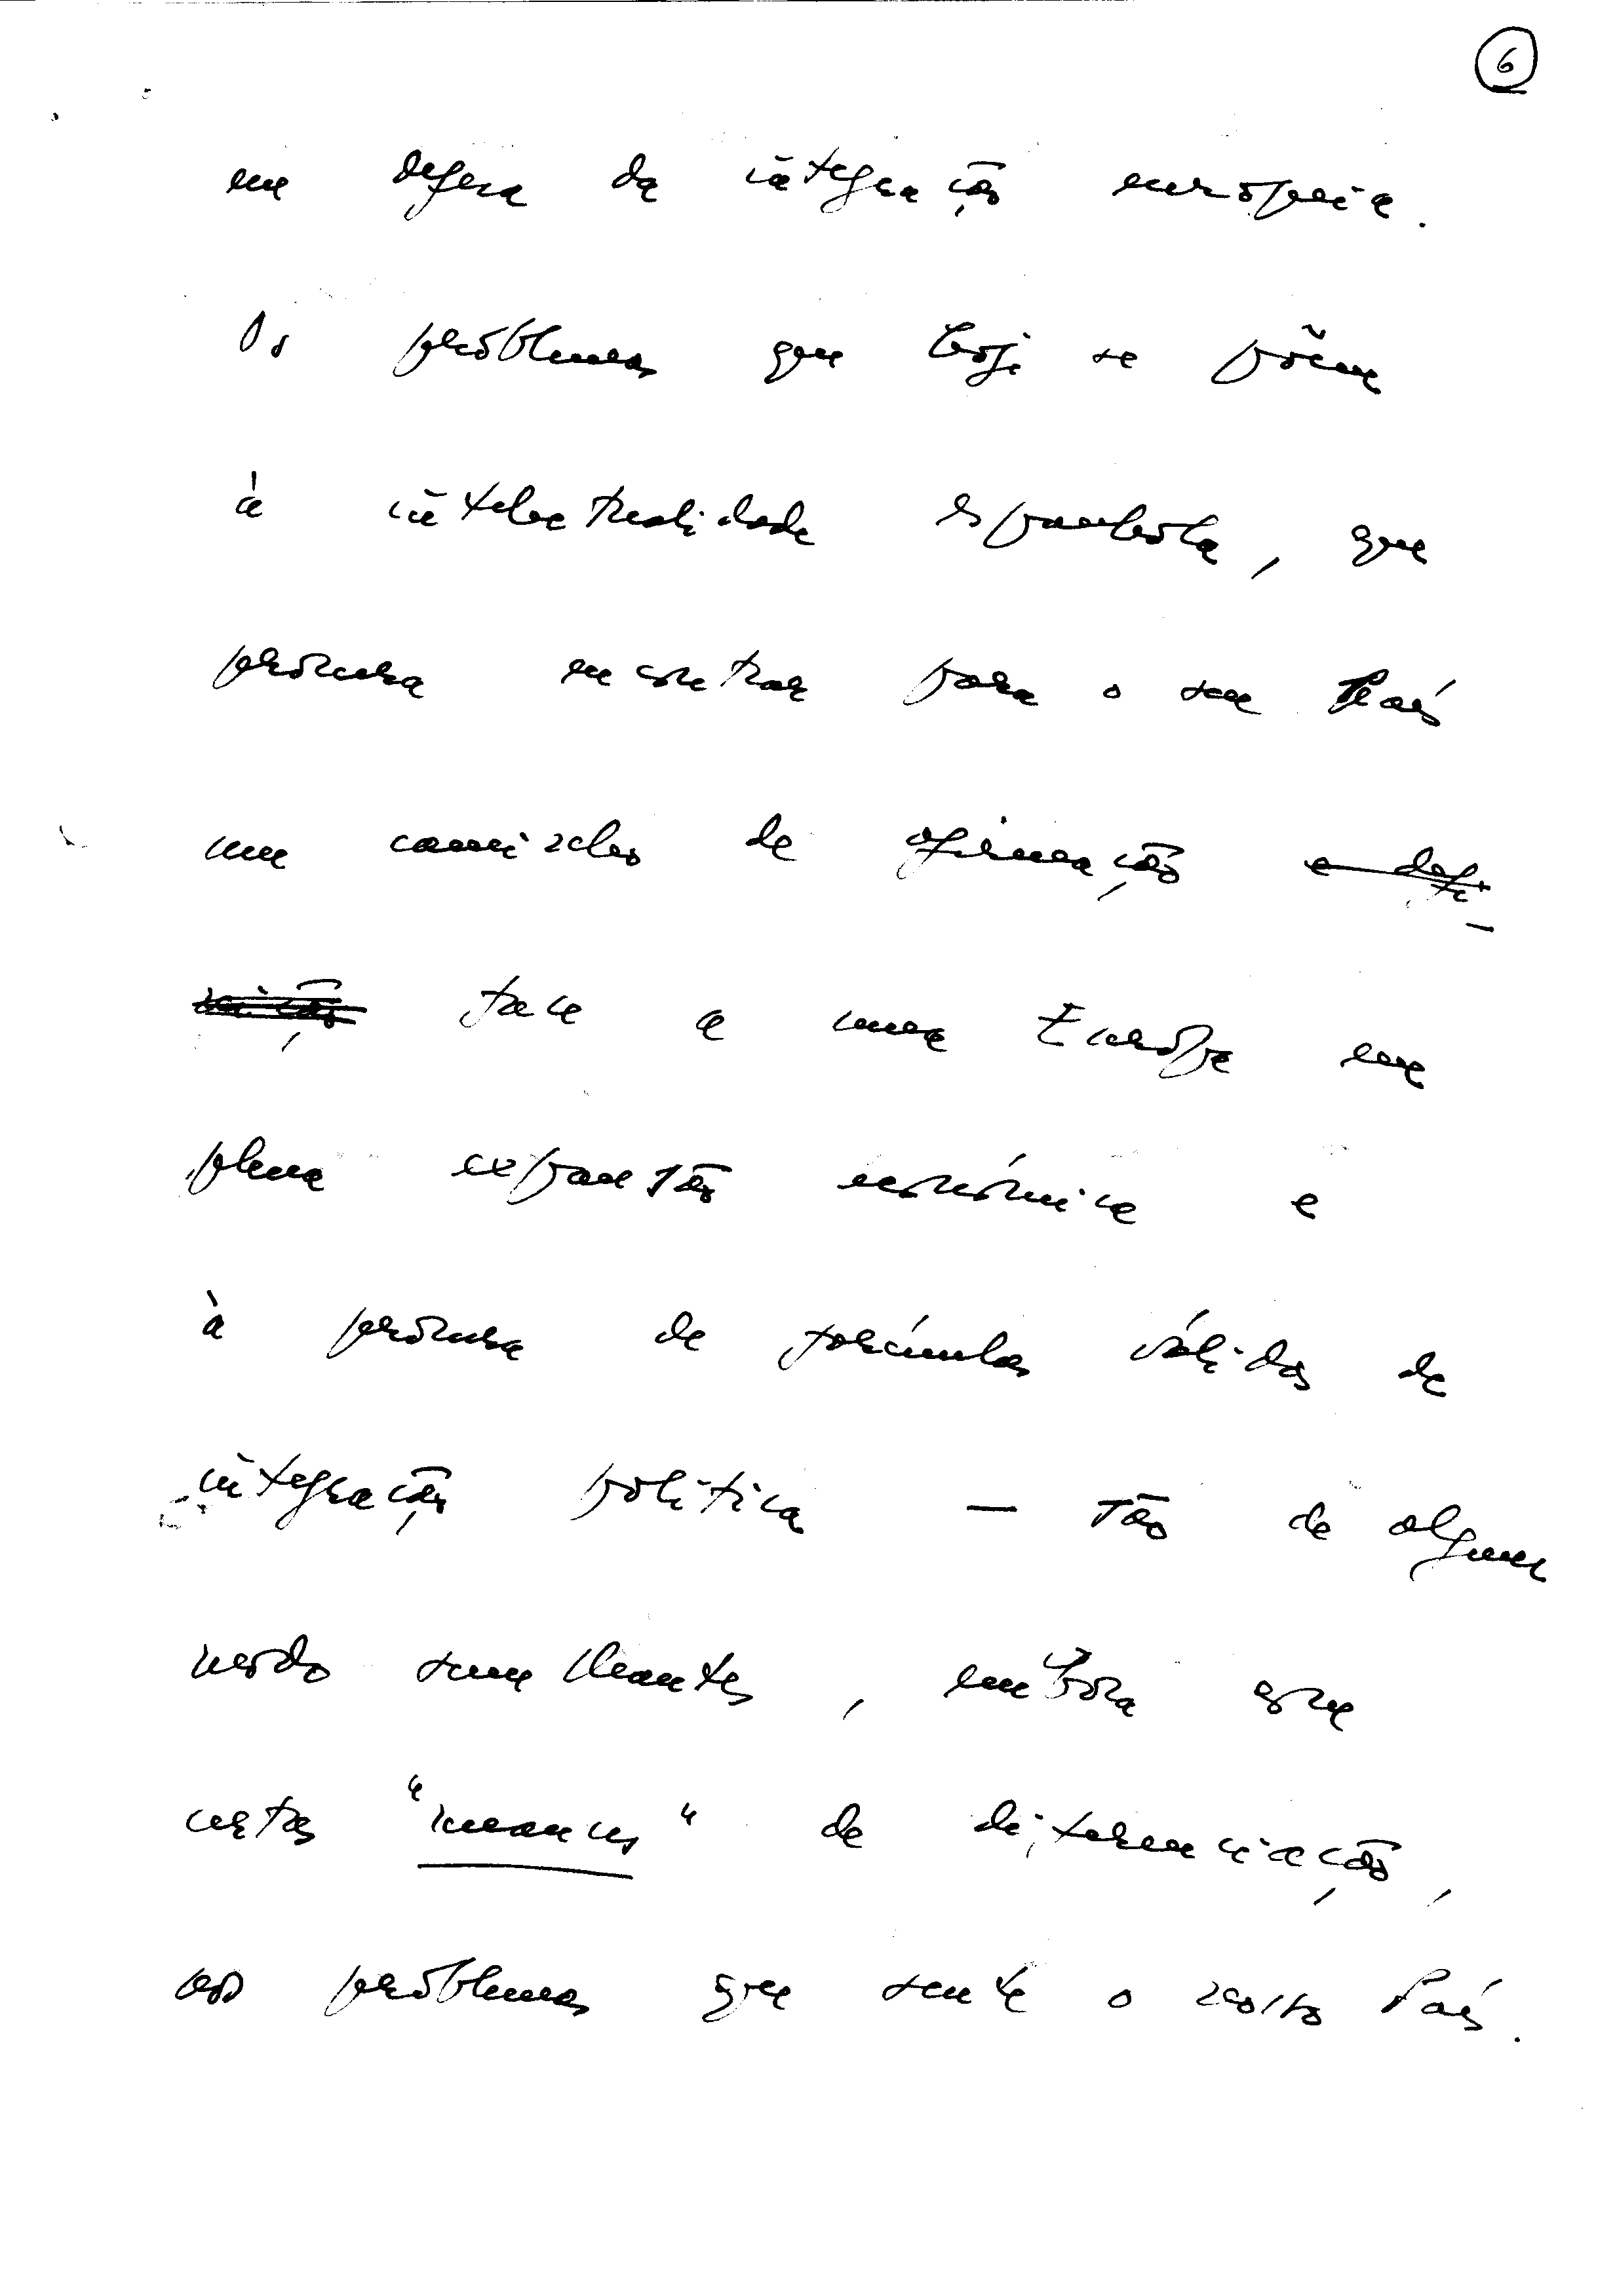 6
em defesa da integração europeia.
Os problemas que hoje se põem
à intelectualidade espanhola, que
procura encontrar para o seu País
um caminho de afirmação e defi-
nição face a uma Europa em
plena expansão económica e
à procura de fórmulas válidas de
integração política — são de algum
modo semelhantes, embora que
certas "nuances" de diferenciação,
aos problemas que sente o nosso País.